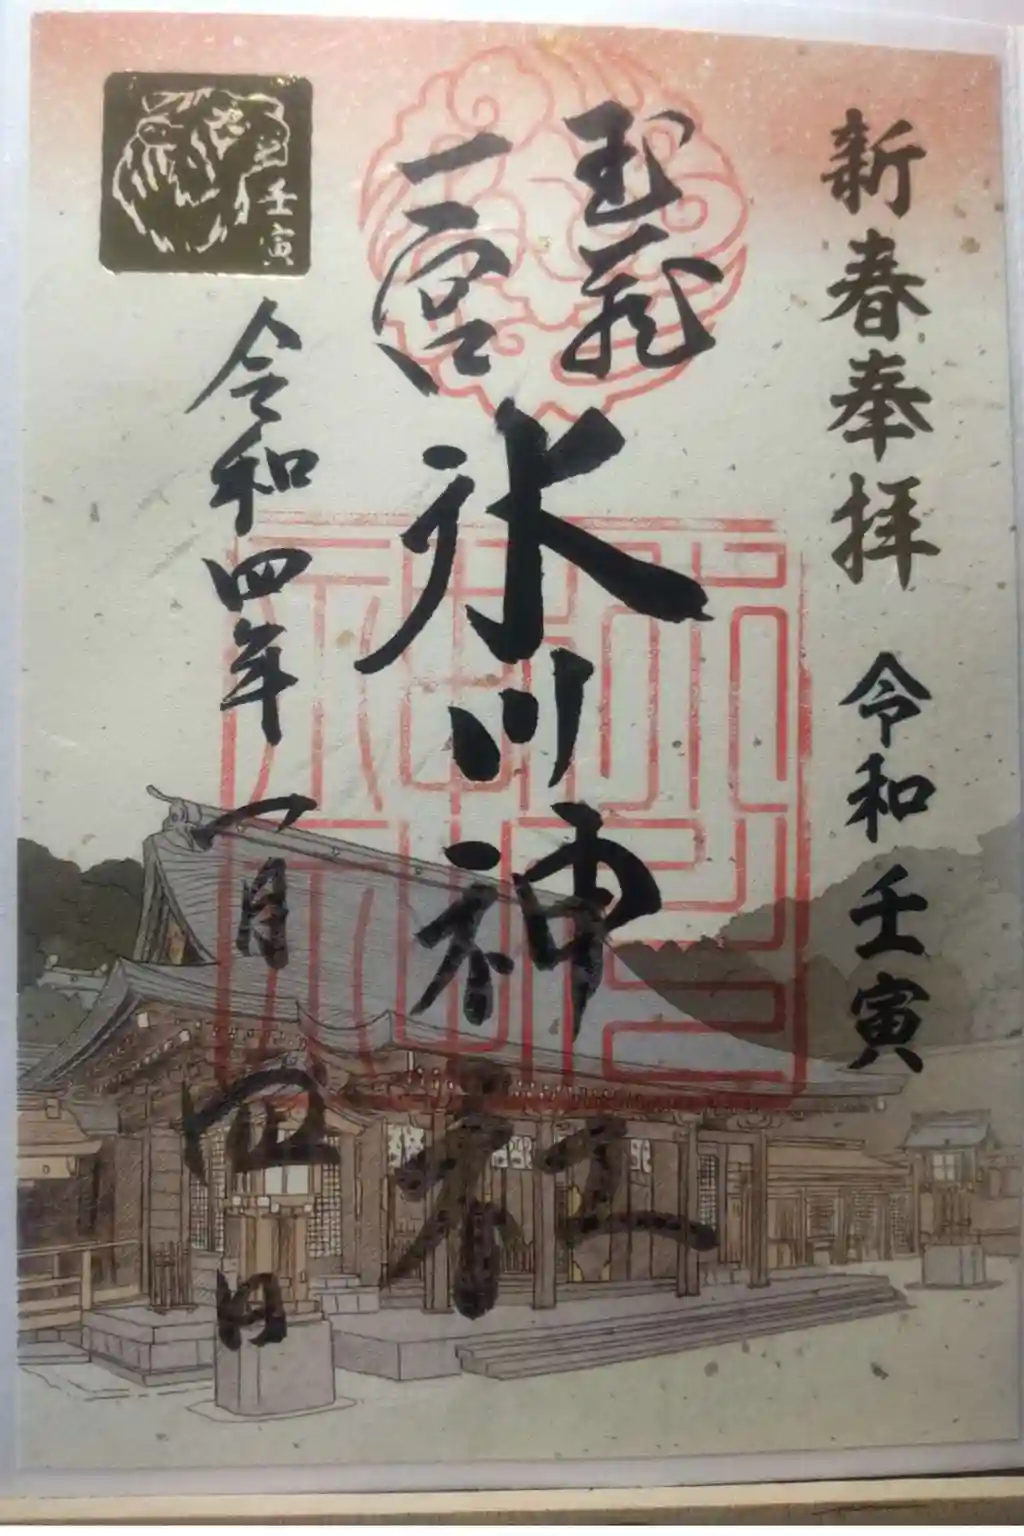 新春奉拝 令和壬寅
武蔵
一宮
氷川神社
壬寅
令和四年一月四日